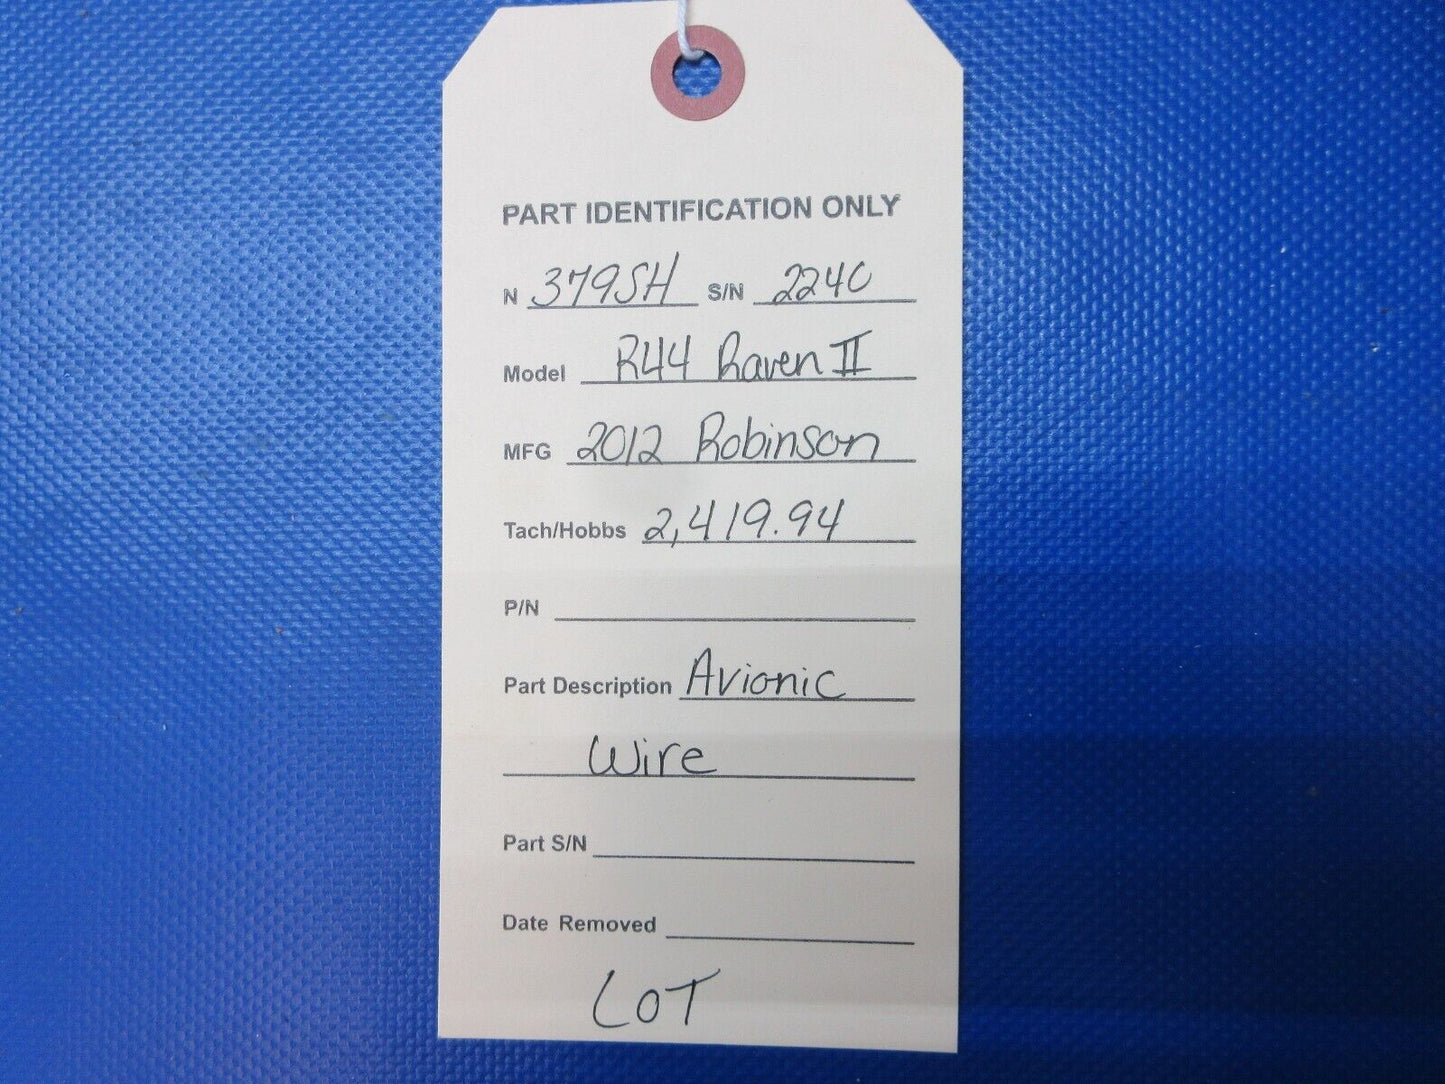 PART IDENTIFICATION ONLY
N 379SH S/N 2240
Model R44 Raven II
MFG 2012 Robinson
Tach/Hobbs 2,419.94
P/N
Part Description Avionic
Wire
Part S/N
Date Removed
LOT